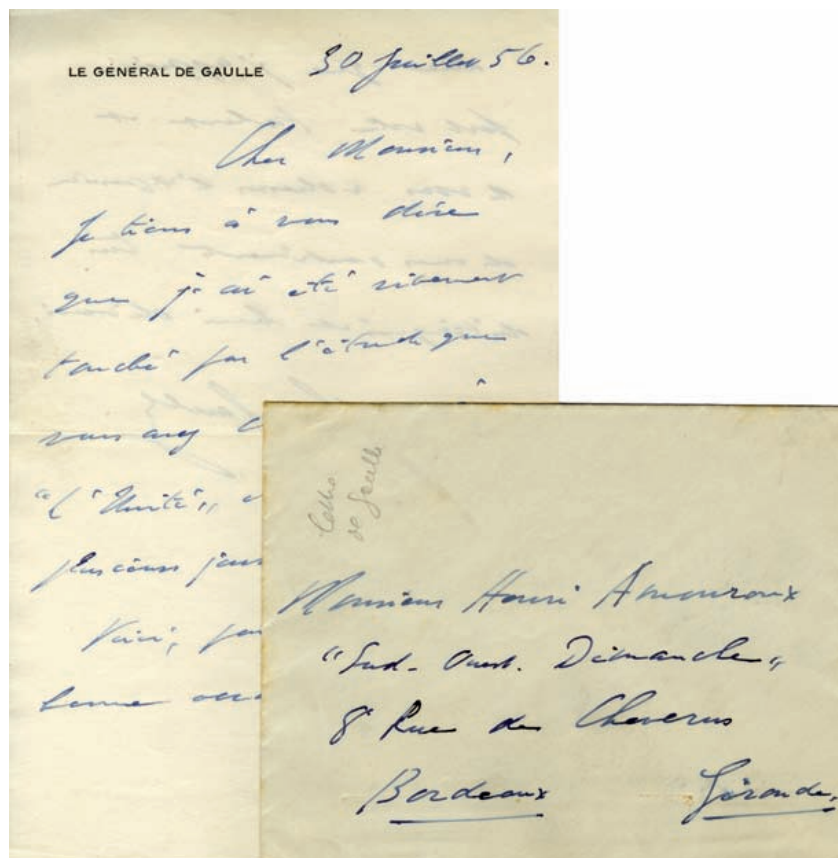 LE GÉNÉRAL DE GAULLE
30 Juillet 56.
Cher Monsieur,
Je tiens à vous dire
que j'ai été vivement
touché par l'étude que
vous avez
"l'Unité"
plusieurs
Voici,
bonne
Lettre
de Gaulle
Monsieur Henri Amouroux
"Sud-Ouest. Dimanche"
8 Rue de Cheverus
Bordeaux Gironde.